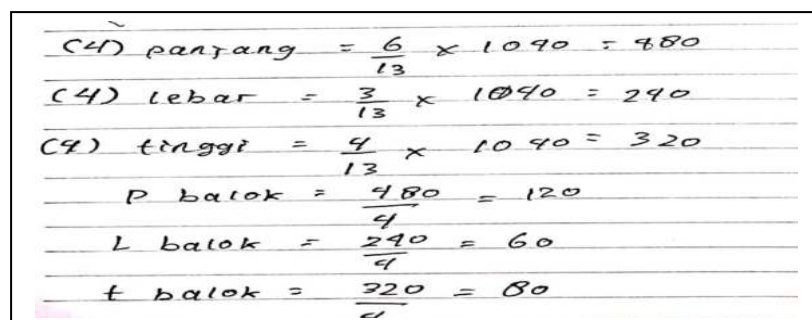 (4) panjang = 6/13 x 1040 = 480
(4) lebar = 3/13 x 1040 = 240
(4) tinggi = 4/13 x 1040 = 320
P balok = 480/4 = 120
L balok = 240/4 = 60
t balok = 320/4 = 80